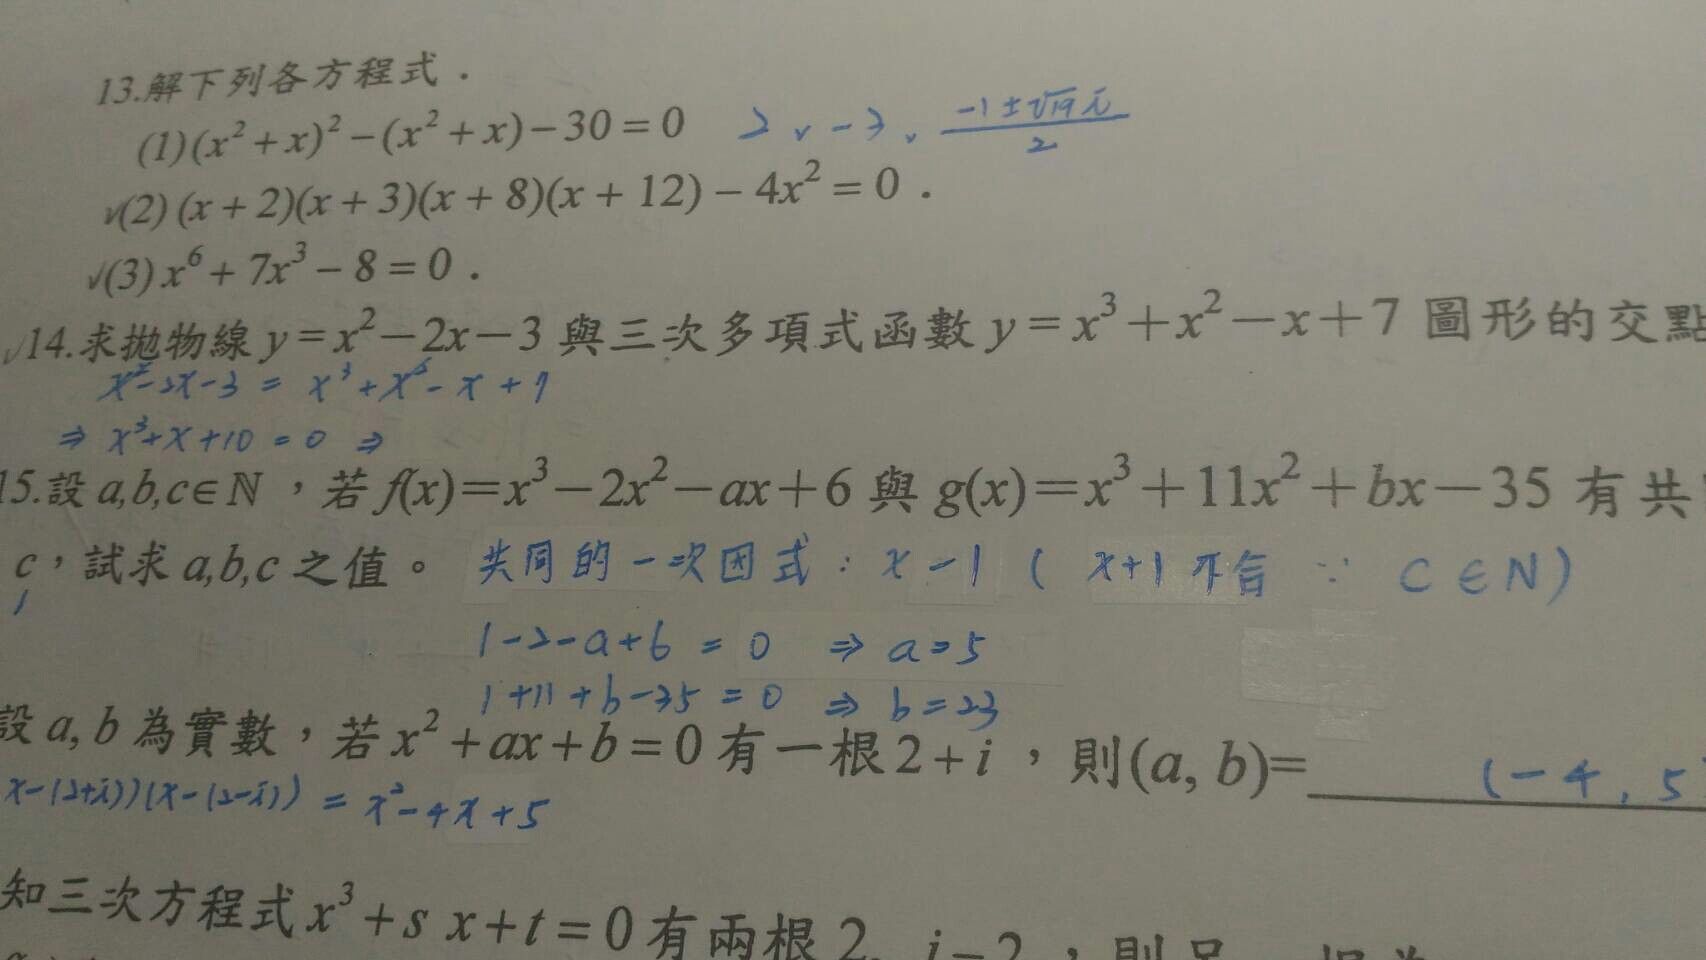 13.解下列各方程式．
(1)(x²+x)²−(x²+x)−30=0 2、-3、(-1±√19 i)/2
✓(2)(x+2)(x+3)(x+8)(x+12)−4x²=0．
✓(3)x⁶+7x³−8=0．
✓14.求拋物線y=x²−2x−3與三次多項式函數y=x³+x²−x+7圖形的交點
x²-2x-3 = x³+x²-x+7
⇒ x³+x+10=0 ⇒
15.設a,b,c∈ℕ，若f(x)=x³−2x²−ax+6與g(x)=x³+11x²+bx−35有共
c，試求a,b,c之值。 共同的一次因式：x-1 ( x+1不合 ∵ c∈N)
1
1-2-a+6=0 ⇒ a=5
1+11+b-35=0 ⇒ b=23
設a, b為實數，若x²+ax+b=0有一根2+i，則(a, b)= (-4, 5
x-(2+i))(x-(2-i)) = x²-4x+5
知三次方程式x³+s x+t=0有兩根2, i−2，則另一根為